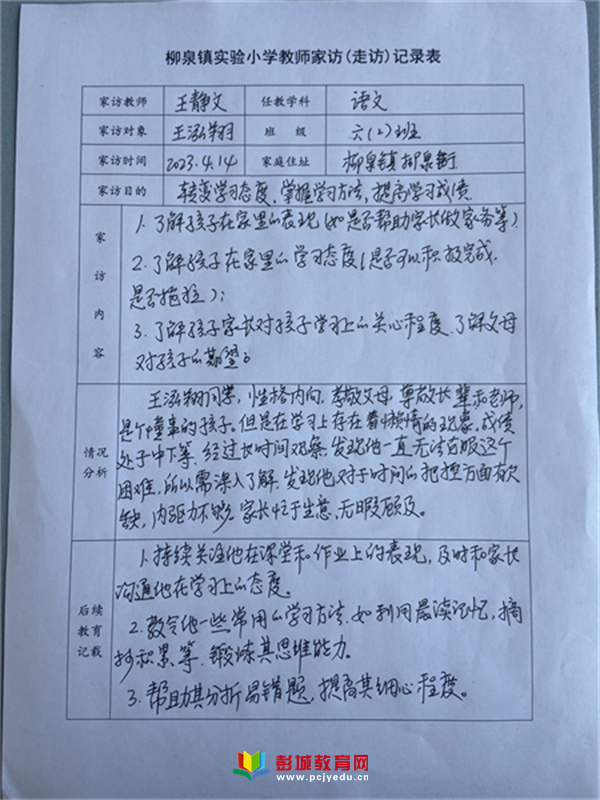 柳泉镇实验小学教师家访(走访)记录表
家访教师 王静文 任教学科 语文
家访对象 王泓翔 班 级 六(2)班
家访时间 2023.4.14 家庭住址 柳泉镇柳泉街
家访目的 转变学习态度、掌握学习方法,提高学习成绩
家访内容
1.了解孩子在家里的表现(如是否帮助家长做家务等)
2.了解孩子在家里的学习态度(是否可以积极完成,
是否拖拉);
3.了解孩子家长对孩子学习上的关心程度,了解父母
对孩子的期望。
情况分析
王泓翔同学,性格内向,孝敬父母,尊敬长辈和老师,
是个懂事的孩子。但是在学习上存在着懒惰的现象,成绩
处于中下等,经过长时间观察,发现他一直无法克服这个
困难,所以需深入了解,发现他对于时间的把控方面有欠
缺,内驱力不够。家长忙于生意,无暇顾及。
后续教育记载
1.持续关注他在课堂和作业上的表现,及时和家长
沟通他在学习上的态度。
2.教会他一些常用的学习方法,如利用晨读记忆,摘
抄积累等,锻炼其思维能力。
3.帮助其分析易错题,提高其细心程度。
彭城教育网
www.pcjyedu.cn